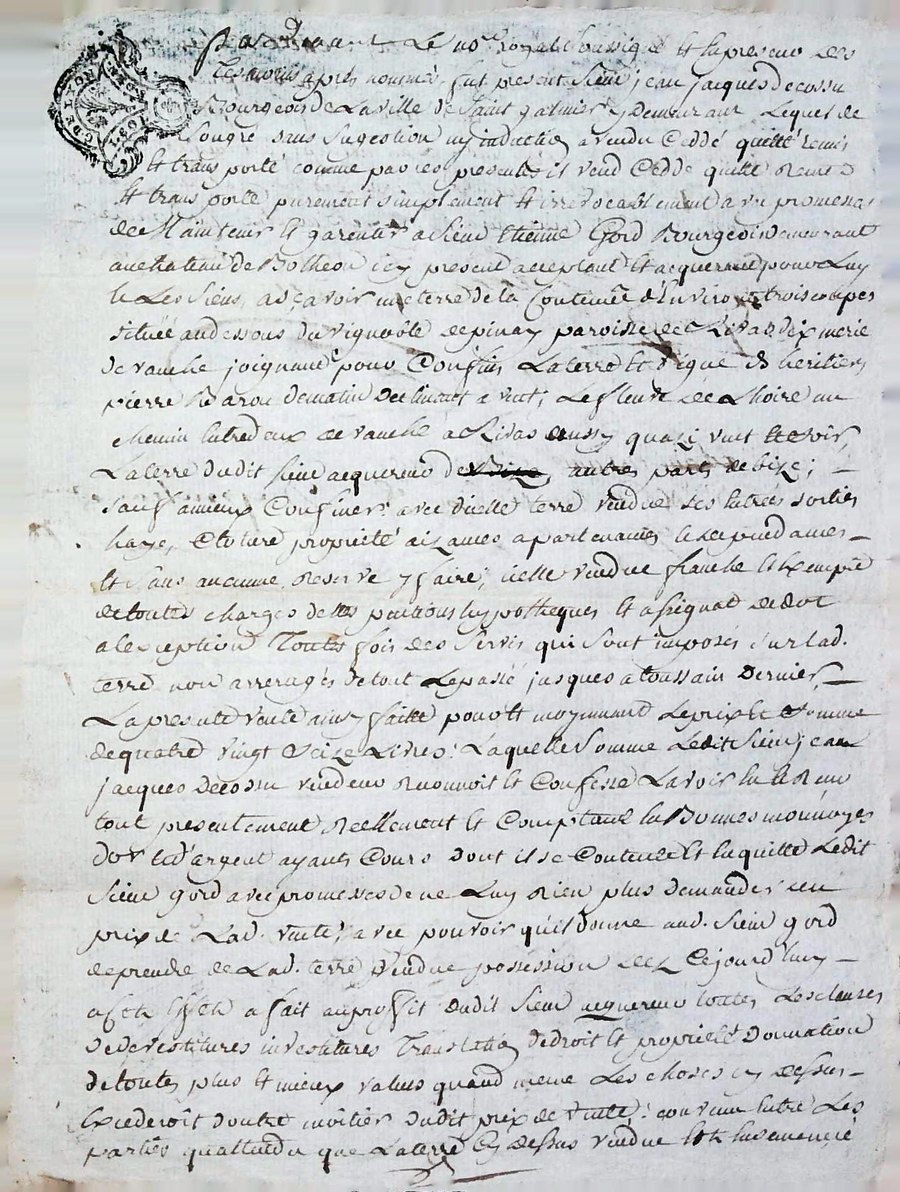 Pardevant Le no.re royal soussigné Et En presence des
Temoins apres nommés, fut present Sieur jean jacques decossu
Bourgeois de La ville de Saint galmier y Demeurant Lequel de
Son gré sans sugestion ny induction a vendu Ceddé quitté remis
Et transporté comme par ces presentes il vend Cedde quitte Remet
Et transporte purement simplement Et irrevocablement avec promesses
de Maintenir Et garentir a Sieur Etienne Gord Bourgeois demeurant
au chateau de Botheon icy present acceptant Et acquerant pour Luy
Et Les Siens, asçavoir une terre de la Contenue d'Environ trois coupes
située au dessous du vignoble depinay paroisse de Rivas dixmerie
de vauche joignant pour Confins La terre Et vigne des heritiers
pierre Barou de matin declinant a vent, Le fleuve de Lhoire un
chemin Entredeux de vauche a Rivas aussy quazi vent Et soir,
La terre dudit Sieur acquereur de autres parts de bize; –
Sauf a mieux Confiner avec d'icelle terre vendue Ses Entrées sorties
haye, Cloture propriété aizances apartenances Et dependances –
Et Sans aucune Reserve y faire; icelle vendue franche Et Exempte
de toutes charges dettes pentions hypotheques Et assignat de dot
a lexception Toutes fois des Servis qui Sont imposés Sur lad.
terre non arreragés de tout Le passé jusques a toussain Dernier, –
La presente vente ainsy faitte pour Et moyennant Le prix Et Somme
de quatre vingt Seize Livres: Laquelle Somme Ledit Sieur jean
jacques Decossu vendeur Reconnoit Et Confesse Lavoir Eu Et Reçu
tout presentement Reellement Et Comptant En Bonnes monnoyes
d'or Et d'argent ayants Cours dont il se Contente Et En quitte Ledit
Sieur gord avec promesses de ne Luy Rien plus demander du
prix de Lad. vente, avec pouvoir qu'il donne aud. Sieur gord
de prendre de Lad. terre vendue possession dez Cejourd'huy –
a Cet Effet a fait au proffit dudit Sieur acquereur toutes Les clauses
de devestitures investitures Translation de droit Et propriété Donnation
de toutes plus Et mieux values quand meme Les choses cy dessus –
Excederoit d'outre moitier dudit prix de vente: convenu Entre Les
parties qu'attendu que La terre Cy Dessus vendue Est Ensemencée